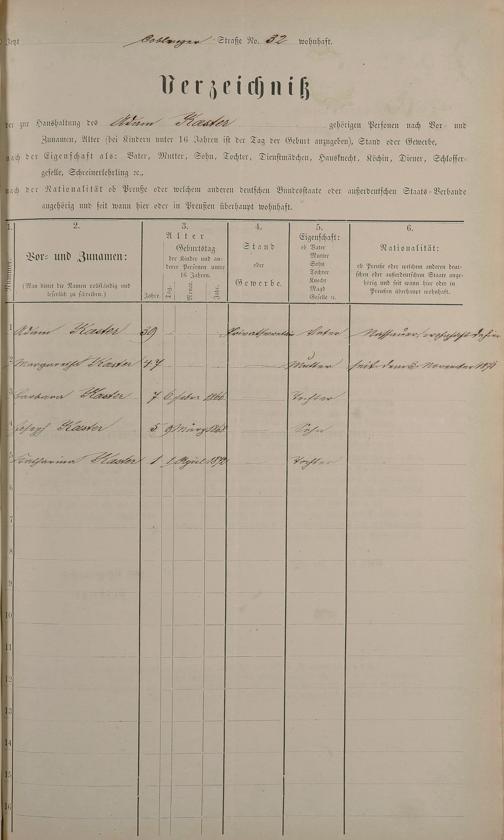 Straße No. 32 wohnhaft.
Verzeichniß
der zur Haushaltung des Adam Kaster gehörigen Personen nach Vor- und
Zunamen, Alter (bei Kindern unter 16 Jahren ist der Tag der Geburt anzugeben), Stand oder Gewerbe,
nach der Eigenschaft als: Vater, Mutter, Sohn, Tochter, Dienstmädchen, Hausknecht, Köchin, Diener, Schlosser-
geselle, Schreinerlehrling ꝛc.,
nach der Nationalität ob Preuße oder welchem anderen deutschen Bundesstaate oder außerdeutschen Staats-Verbande
angehörig und seit wann hier oder in Preußen überhaupt wohnhaft.
1. 2. 3. 4. 5. 6.
Nummer.
Vor- und Zunamen:
(Man bittet die Namen vollständig und
leserlich zu schreiben.)
Alter
Geburtstag
der Kinder und an-
derer Personen unter
16 Jahren.
Jahre. Tag. Monat. Jahr.
Stand
oder
Gewerbe.
Eigenschaft:
ob Vater
Mutter
Sohn
Tochter
Knecht
Magd
Geselle ꝛc.
Nationalität:
ob Preuße oder welchem anderen deut-
schen oder außerdeutschen Staate ange-
hörig und seit wann hier oder in
Preußen überhaupt wohnhaft.
1 Adam Kaster 39 Vater
2 Margaretha Kaster 47 Mutter seit dem November 1871
3 Barbara Kaster 7 6 Tochter
4 Joseph Kaster 5 9 März Sohn
5 Katharina Kaster 1 1 April 1870 Tochter
6
7
8
9
10
11
12
13
14
15
16